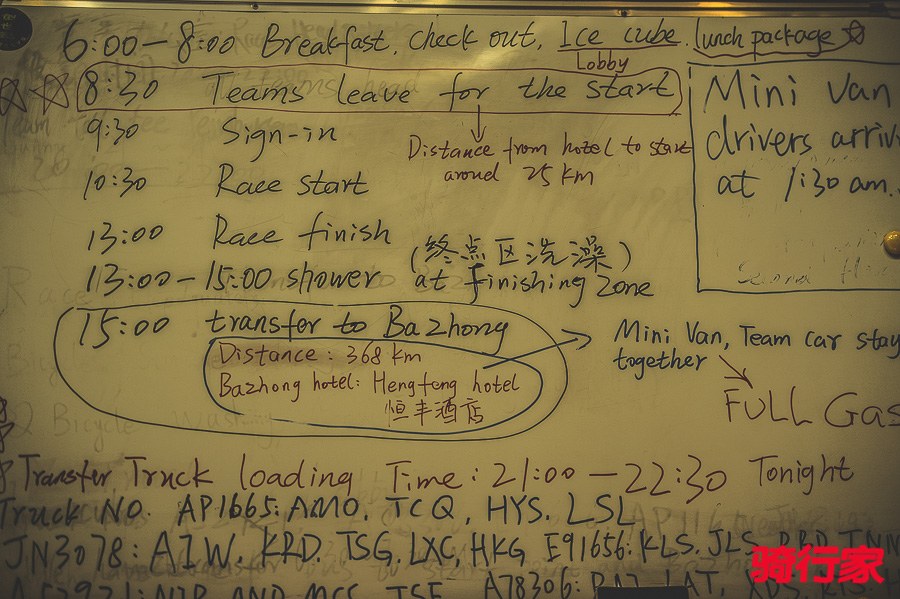 6:00-8:00 Breakfast, check out, Ice cube, lunch package
Lobby
8:30 Teams leave for the start
Distance from hotel to start
around 25 km
Mini Van
drivers arriv
at 1:30 am.
9:30 Sign-in
10:30 Race start
13:00 Race finish
13:00-15:00 shower (终点区洗澡)
at finishing zone
15:00 transfer to Bazhong
Distance: 368 km
Bazhong hotel: Hengfeng hotel
恒丰酒店
Mini Van, Team car stay
together
FULL Gas
Transfer Truck loading Time: 21:00-22:30 Tonight
Truck NO. AP1665: AMO. TCQ, HYS. LSL
JN3078: AIW, KRD, TSG, LXC, HKG E91656: KLS. JLS
A78306:
骑行家